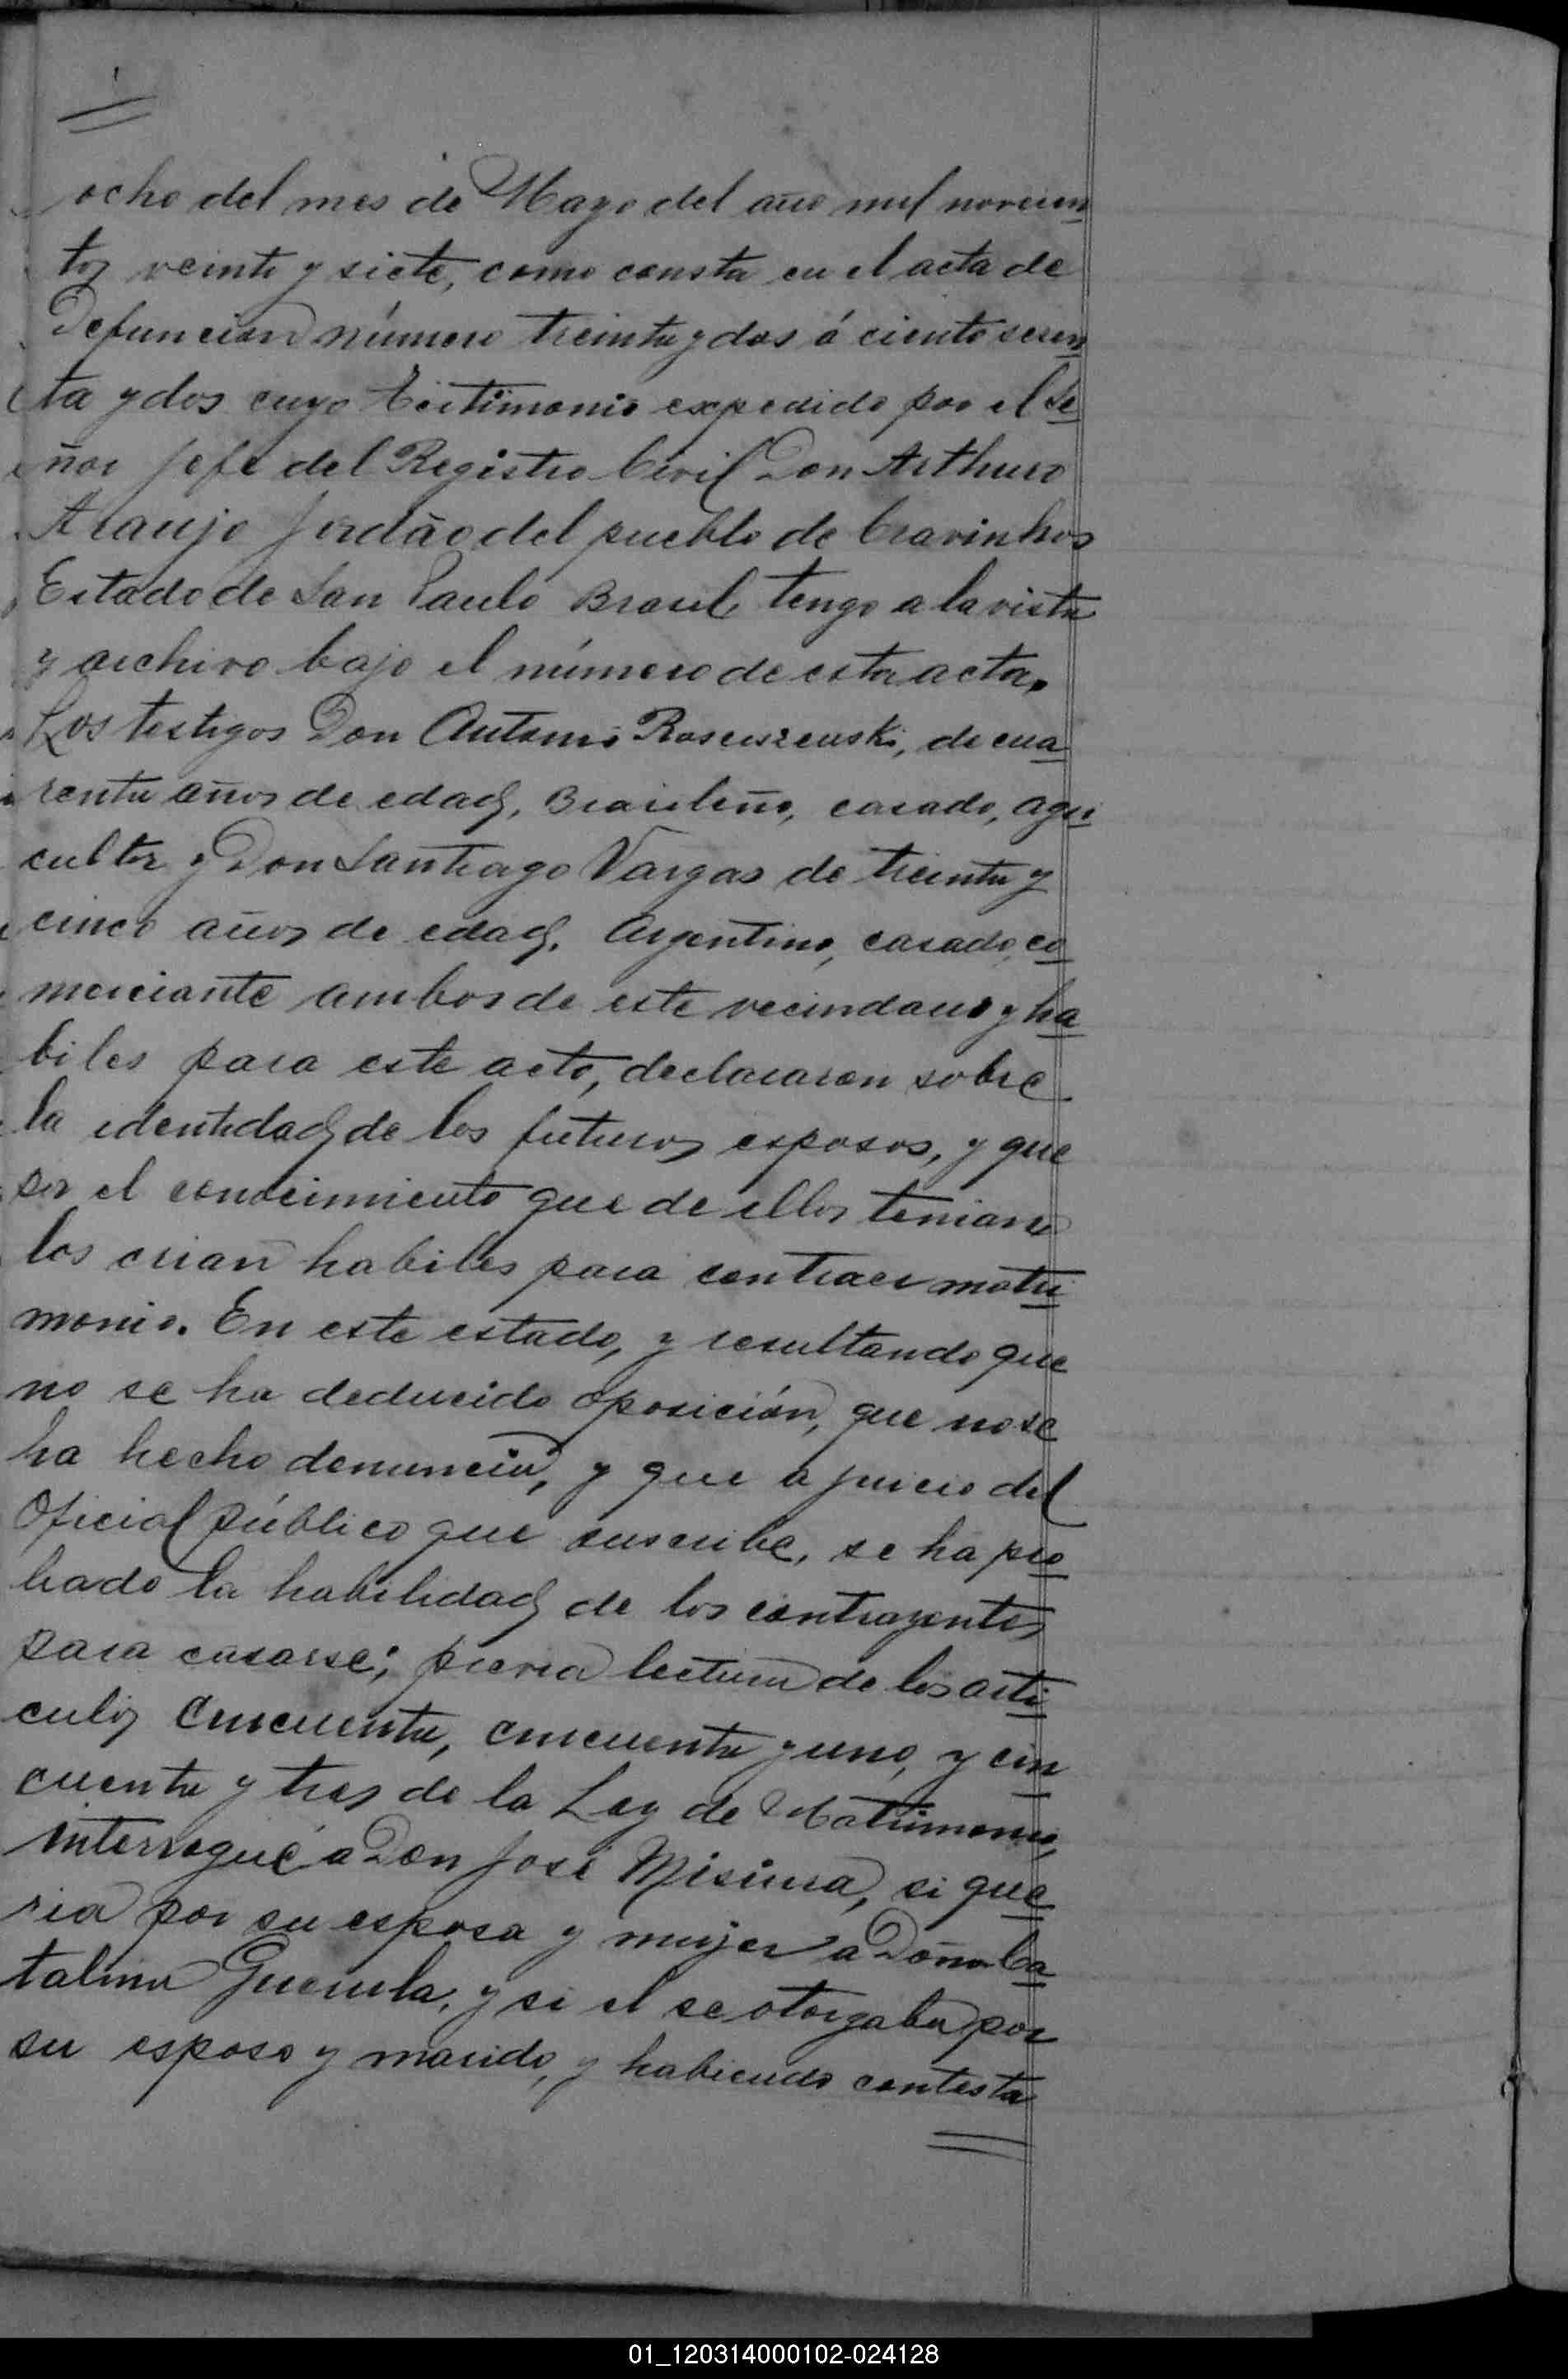 ocho del mes de Mayo del año mil novecien
tos veinte y siete, como consta en el acta de
Defunción número treinta y dos á ciento seten
ta y dos cuyo testimonio expedido por el Se
ñor Jefe del Registro Civil Don Arthuro
Araujo Jordão del pueblo de Cravinhos
Estado de San Paulo Brasil, tengo a la vista
y archivo bajo el número de esta acta.
Los testigos Don Antonio, de cua
renta años de edad, Brasileño, casado, agri
cultor y Don Santiago Vargas de treinta y
cinco años de edad, Argentino, casado, co
merciante ambos de este vecindario y ha
biles para este acto, declararon sobre
la identidad de los futuros esposos, y que
por el conocimiento que de ellos tenian
los crian habiles para contraer matri
monio. En este estado, y resultando que
no se ha deducido oposición, que no se
ha hecho denuncia, y que a juicio del
Oficial público que suscribe, se ha pro
bado la habilidad de los contrayentes
para casarse; previa lectura de los arti
culos cincuenta, cincuenta y uno, y cin
cuenta y tres de la Ley de Matrimonio,
interrogué a Don José Misiura, si que
ria por su esposa y mujer a Doña Ca
talina, y si el se otorgaba por
su esposo y marido, y habiendo contesta
01_120314000102-024128